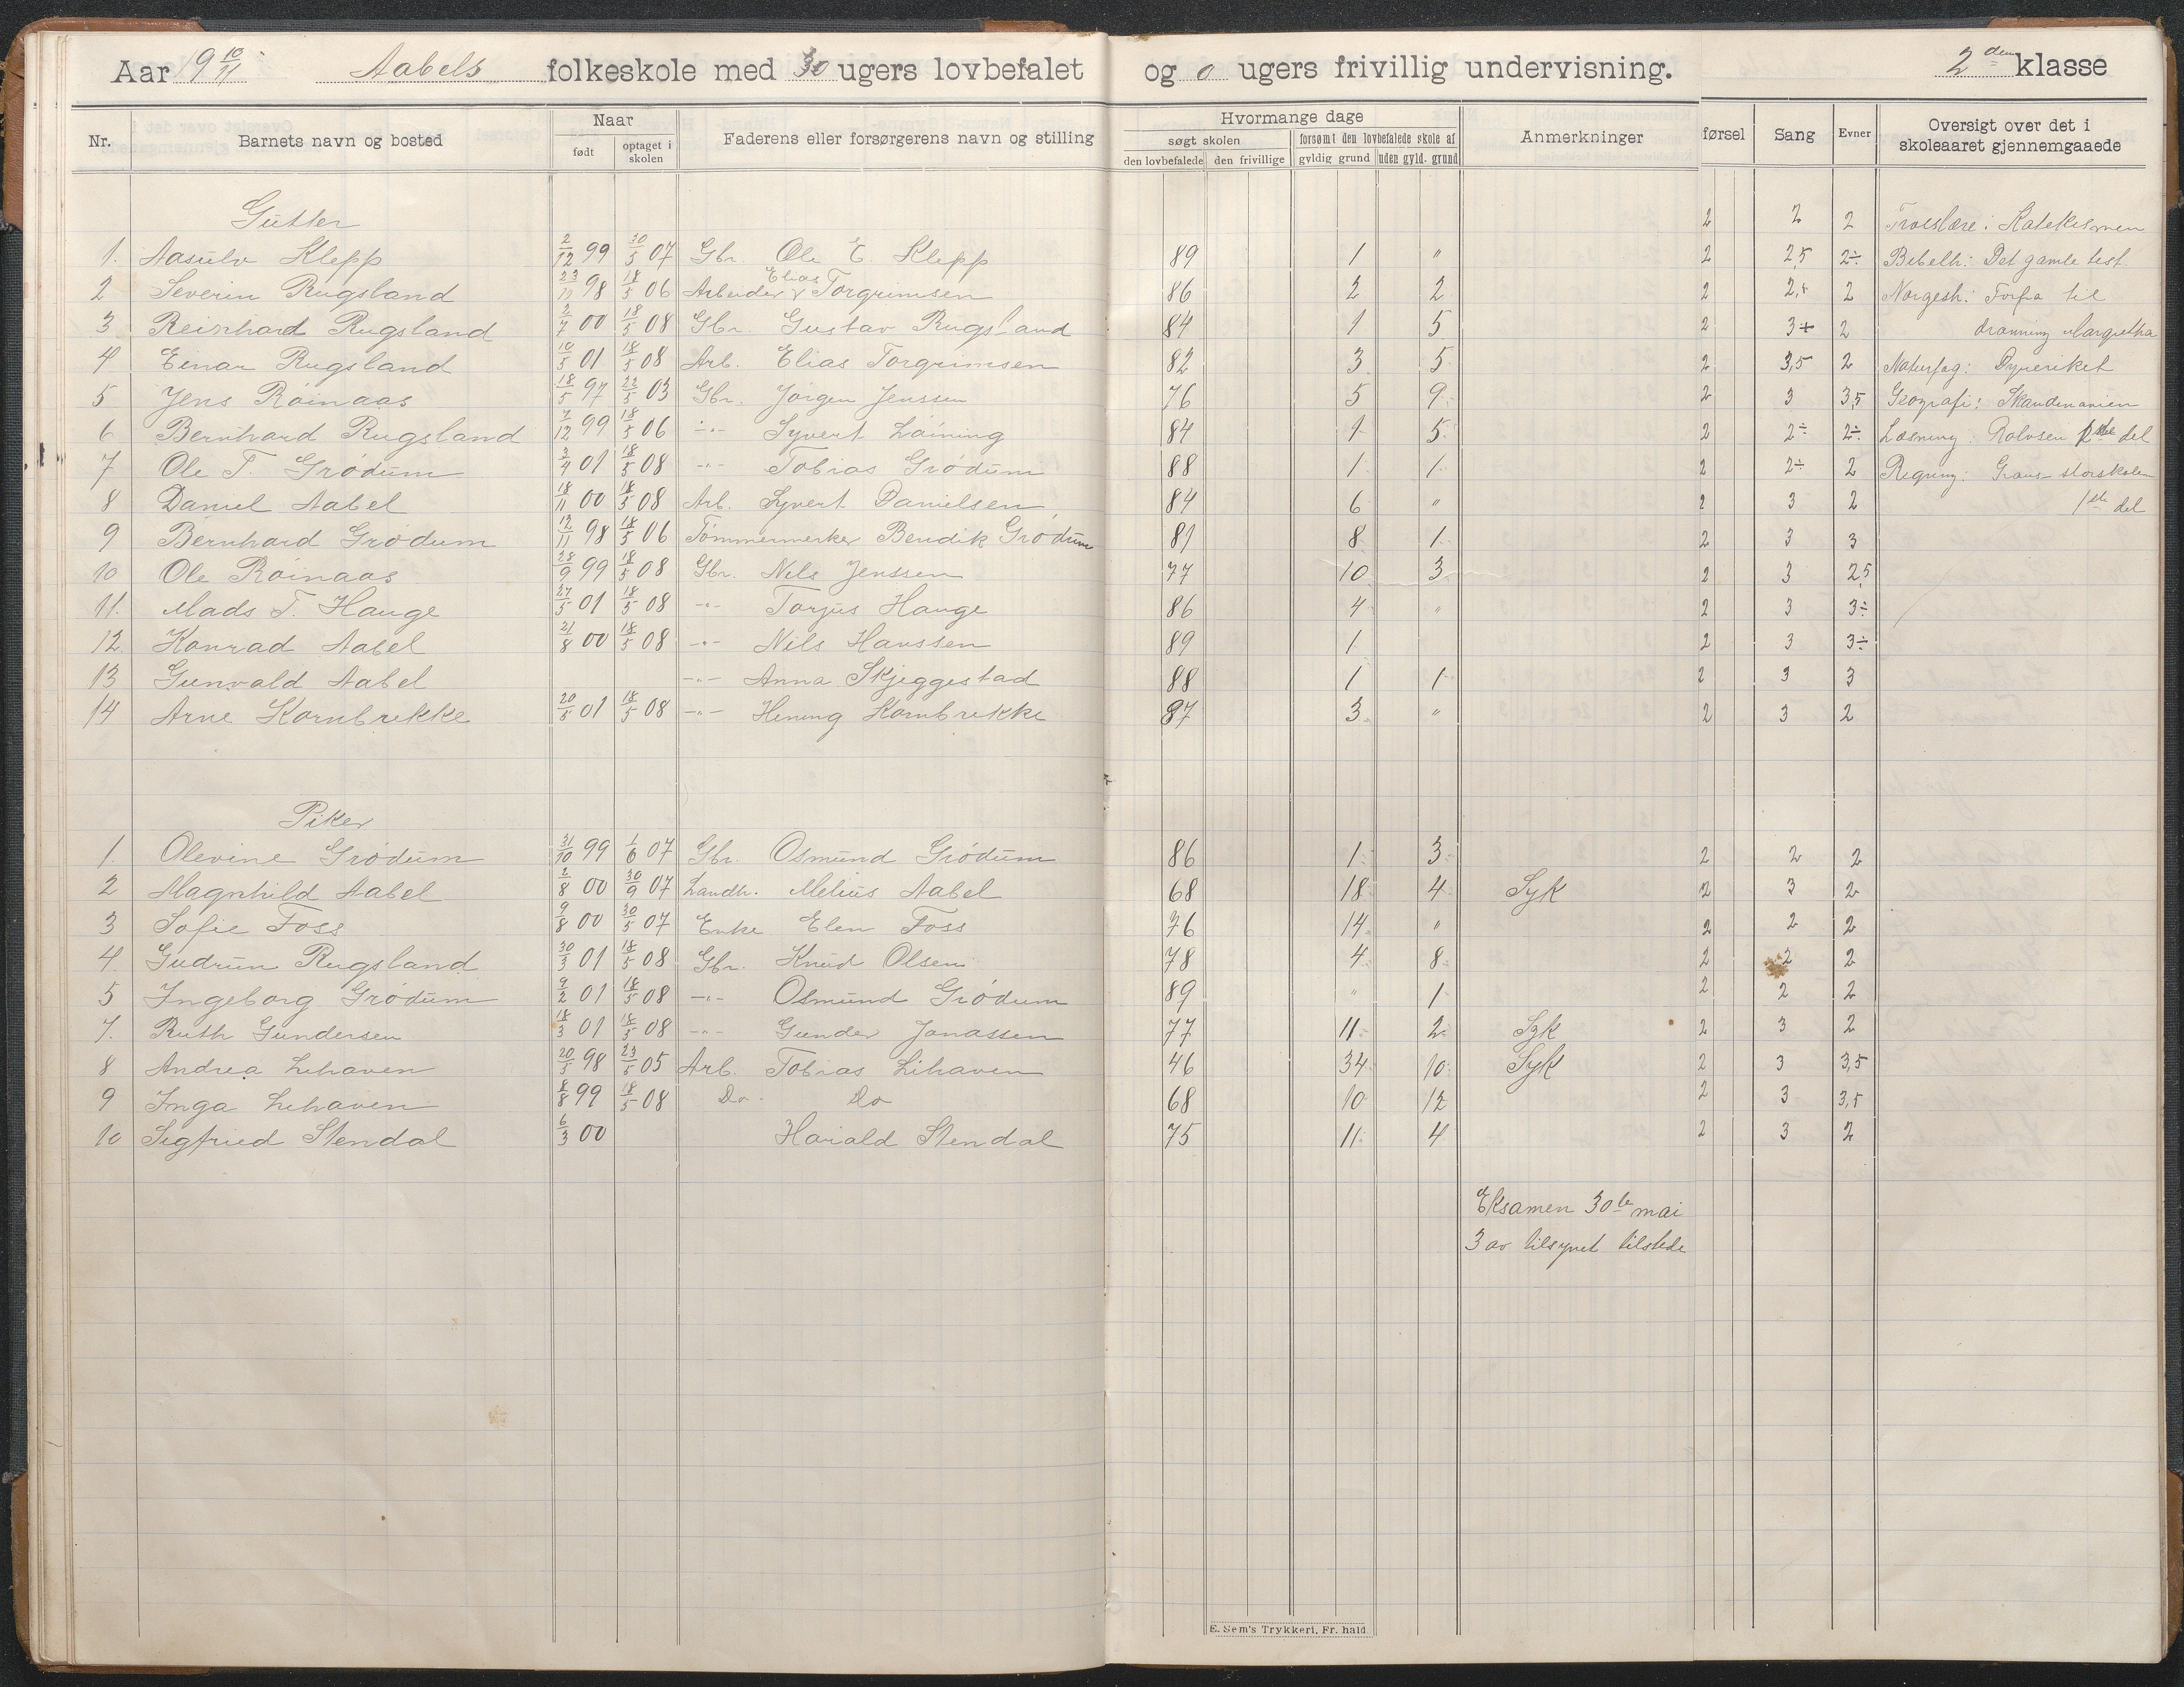 Aar 19 10/11 Aabels folkeskole med 30 ugers lovbefalet og 0 ugers frivillig undervisning. 2den klasse
Nr. Barnets navn og bosted Naar født optaget i skolen Faderens eller forsørgerens navn og stilling Hvormange dage søgt skolen den lovbefalede den frivillige forsømt den lovbefalede skole af gyldig grund uden gyld. grund Anmerkninger førsel Sang Evner Oversigt over det i skoleaaret gjennemgaaede
Gutter 2 2 2 Troeslære: Katekismen
1. Aasulv Klepp 2/12 99 30/5 07 Gbr. Ole E. Klepp 89 1 " 2 2,5 2÷ Bibelh: Det gamle test
2 Severin Rugsland 23/11 98 18/5 06 Arbeider Elias Torgrimsen 86 2 2 2 2,5 2 Norgesh: Forfra til
3 Reinhard Rugsland 2/7 00 18/5 08 Gbr. Gustav Rugsland 84 1 5 2 3+ 2 dronning Margretha
4 Einar Rugsland 10/5 01 18/5 08 Arb. Elias Torgrimsen 82 3 5 2 3,5 2 Naturfag: Dyreriket
5 Jens Röinaas 18/5 97 22/5 03 Gbr. Jørgen Jenssen 76 5 9 2 3 3,5 Geografi: Skandinavien
6 Bernhard Rugsland 7/12 99 18/5 06 -"- Syvert Löining 84 1 5 2 2÷ 2÷ Læsning: Rolvsen del
7 Ole T. Grödum 3/4 01 18/5 08 -"- Tobias Grödum 88 1 1 2 2÷ 2 Regning: Graus storskolen
8 Daniel Aabel 18/11 00 18/5 08 Arb. Syvert Danielsen 84 6 " 2 3 2 1ste del
9 Bernhard Grödum 12/11 98 18/5 06 Tømmermerker Bendik Grödum 81 8 1 2 3 3
10 Ole Röinaas 28/9 99 18/5 08 Gbr. Nils Jenssen 77 10 3 2 3 2,5
11. Mads T. Hauge 27/5 01 18/5 08 -"- Torjus Hauge 86 4 " 2 3 3÷
12. Konrad Aabel 21/8 00 18/5 08 -"- Nils Hanssen 89 1 2 3 3÷
13 Gunvald Aabel -"- Anna Skjeggestad 88 1 1 2 3 3
14 Arne Kornbrekke 20/5 01 18/5 08 -"- Hening Kornbrekke 87 3 " 2 3 2
Piker
1. Olevine Grödum 31/10 99 1/6 07 Gbr. Osmund Grödum 86 1 3 2 2 2
2 Magnhild Aabel 2/8 00 30/9 07 Landh. Melius Aabel 68 18 4 Syk 2 3 2
3 Sofie Foss 9/8 00 30/5 07 Enke Elen Foss 76 14 " 2 2 2
4. Gudrun Rugsland 30/3 01 18/5 08 Gbr. Knud Olsen 78 4 8 2 2 2
5 Ingeborg Grödum 9/2 01 18/5 08 -"- Osmund Grödum 89 " 1 2 2 2
7. Ruth Gundersen 18/3 01 18/5 08 -"- Gunder Jonassen 77 11 2 Syk 2 3 2
8 Andrea Lihaven 20/5 98 23/5 05 Arb. Tobias Lihaven 46 34 10 Syk 2 3 3,5
9 Inga Lihaven 8/8 99 18/5 08 Do. Do 68 10 12 2 3 3,5
10 Sigfried Stendal 6/3 00 Harald Stendal 75 11 4 2 3 2
Eksamen 30te mai
3 av tilsynet tilstede
E. Sem's Trykkeri, Fr. hald